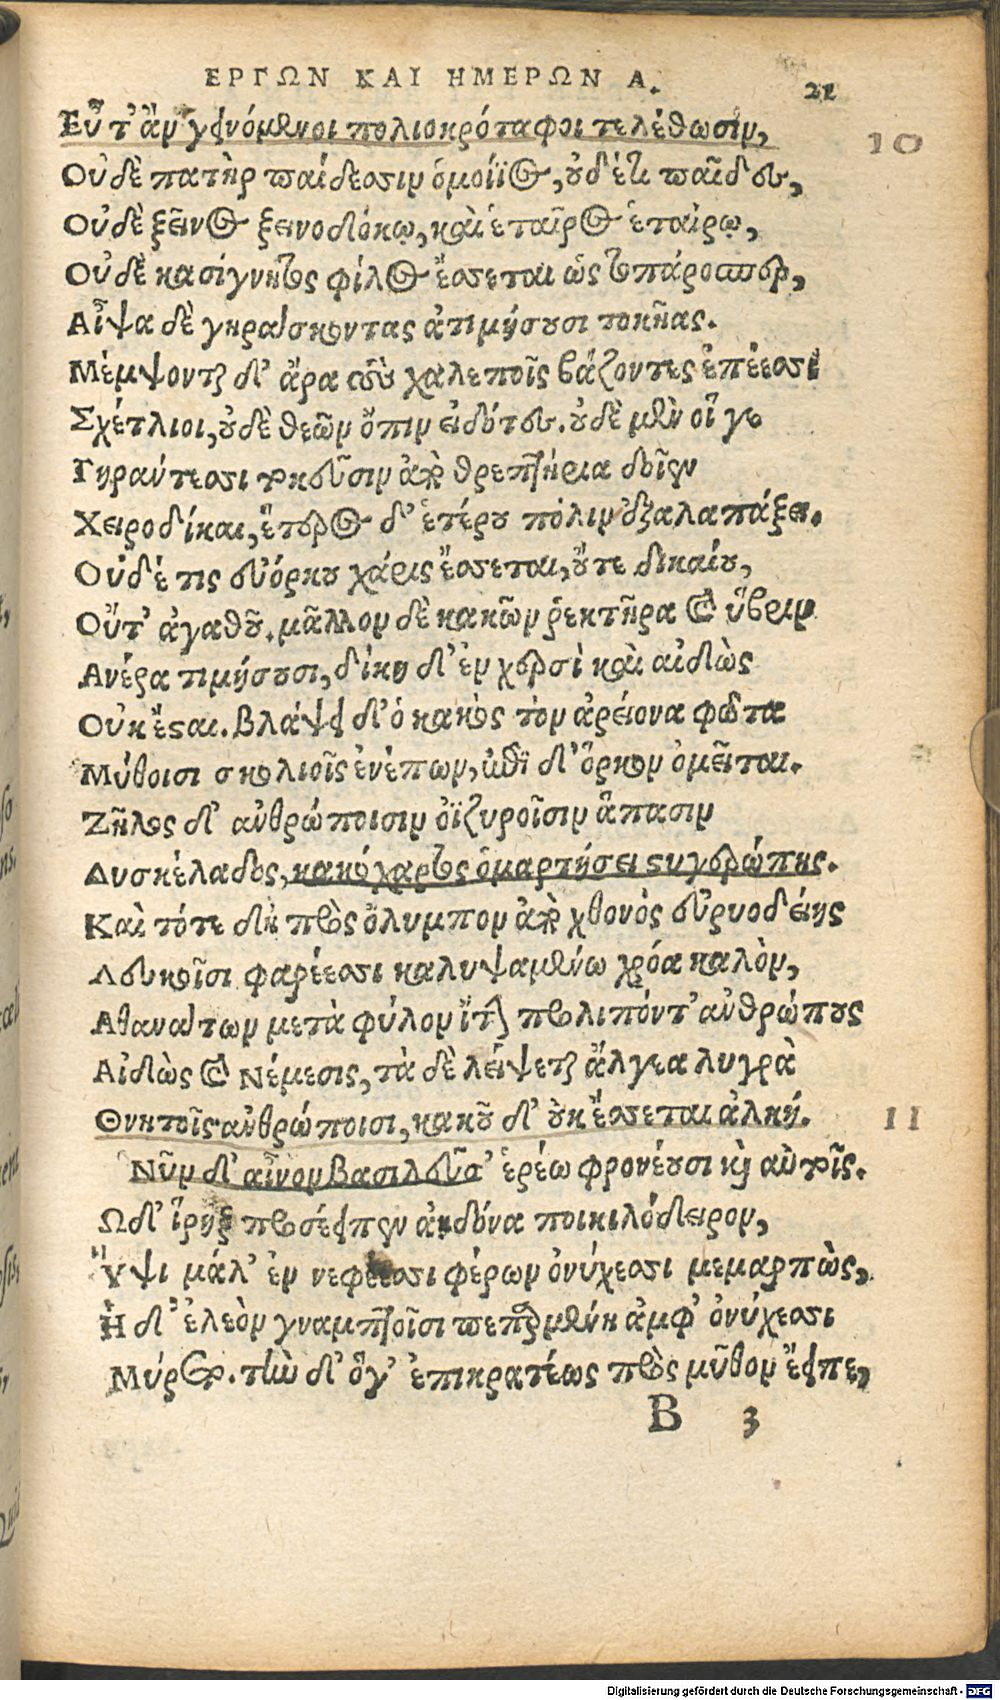 ΕΡΓΩΝ ΚΑΙ ΗΜΕΡΩΝ Α.
21
Εὖτ' ἂν γεινόμενοι πολιοκρόταφοι τελέθωσιν,
10
Οὐδὲ πατὴρ παίδεσσιν ὁμοίϊος, οὐδέτι παῖδες,
Οὐδὲ ξεῖνος ξεινοδόκῳ, καὶ ἑταῖρος ἑταίρῳ,
Οὐδὲ κασίγνητος φίλος ἔσσεται ὡς τοπάροσπερ,
Αἶψα δὲ γηράσκοντας ἀτιμήσουσι τοκῆας.
Μέμψονται δ' ἄρα τοὺς χαλεποῖς βάζοντες ἐπέεσσι
Σχέτλιοι, οὐδὲ θεῶν ὄπιν εἰδότες. οὐδὲ μὲν οἵ γε
Γηράντεσσι τοκεῦσιν ἀπὸ θρεπτήρια δοῖεν
Χειροδίκαι, ἕτερος δ' ἑτέρου πόλιν ἐξαλαπάξει.
Οὐδέ τις εὐόρκου χάρις ἔσσεται, οὔτε δικαίου,
Οὔτ' ἀγαθοῦ. μᾶλλον δὲ κακῶν ῥεκτῆρα καὶ ὕβριν
Ανέρα τιμήσουσι, δίκη δ' ἐν χερσὶ καὶ αἰδὼς
Οὐκ ἔσται. βλάψει δ' ὁ κακὸς τὸν ἀρείονα φῶτα
Μύθοισι σκολιοῖς ἐνέπων, ἐπὶ δ' ὅρκον ὀμεῖται.
Ζῆλος δ' ἀνθρώποισιν ὀϊζυροῖσιν ἅπασιν
Δυσκέλαδος, κακόχαρτος ὁμαρτήσει στυγερώπης.
Καὶ τότε δὴ πρὸς ὄλυμπον ἀπὸ χθονὸς εὐρυοδείης
Λευκοῖσι φαρέεσσι καλυψαμένω χρόα καλὸν,
Αθανάτων μετὰ φῦλον ἴτην προλιπόντ' ἀνθρώπους
Αἰδὼς καὶ Νέμεσις, τὰ δὲ λείψεται ἄλγεα λυγρὰ
Θνητοῖς ἀνθρώποισι, κακοῦ δ' οὐκ ἔσσεται ἀλκή.
11
Νῦν δ' αἶνον βασιλεῦσ' ἐρέω φρονέουσι καὶ αὐτοῖς.
Ωδ' ἴρηξ προσέειπεν ἀηδόνα ποικιλόδειρον,
Ὕψι μάλ' ἐν νεφέεσσι φέρων ὀνύχεσσι μεμαρπὼς,
Ἡ δ' ἐλεὸν γναμπτοῖσι πεπαρμένη ἀμφ' ὀνύχεσσι
Μύρετο. τὴν δ' ὅγ' ἐπικρατέως πρὸς μῦθον ἔειπε,
B 3
Digitalisierung gefördert durch die Deutsche Forschungsgemeinschaft - DFG